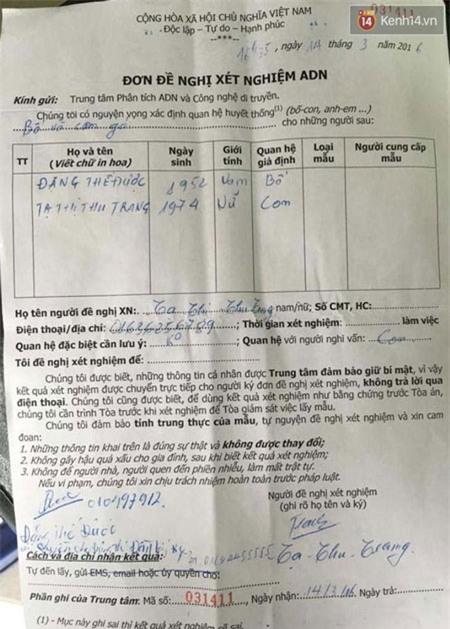 CỘNG HÒA XÃ HỘI CHỦ NGHĨA VIỆT NAM 031411
Kenh14.vn
Độc lập – Tự do – Hạnh phúc
--***--
ngày 14 tháng 3 năm 2016
ĐƠN ĐỀ NGHỊ XÉT NGHIỆM ADN
Kính gửi: Trung tâm Phân tích ADN và Công nghệ di truyền.
Chúng tôi có nguyện vọng xác định quan hệ huyết thống(1) (bố-con, anh-em ...)
Bố và con gái cho những người sau:
TT Họ và tên (Viết chữ in hoa) Ngày sinh Giới tính Quan hệ giả định Loại mẫu Người cung cấp mẫu
ĐẶNG THẾ ĐƯỢC 1952 Nam Bố
TẠ THỊ THU TRANG 1974 Nữ Con
Họ tên người đề nghị XN: Tạ Thị Thu Trang nam/nữ; Số CMT, HC:
Điện thoại/địa chỉ: ; Thời gian xét nghiệm: làm việc
Quan hệ đặc biệt cần lưu ý: ; Quan hệ với người nghi vấn: Con
Tôi đề nghị xét nghiệm để:
Chúng tôi được biết, những thông tin cá nhân được Trung tâm đảm bảo giữ bí mật, vì vậy
kết quả xét nghiệm được chuyển trực tiếp cho người ký đơn đề nghị xét nghiệm, không trả lời qua
điện thoại. Chúng tôi cũng được biết, để dùng kết quả xét nghiệm như bằng chứng trước Tòa án,
chúng tôi cần trình Tòa trước khi xét nghiệm để Tòa giám sát việc lấy mẫu.
Chúng tôi đảm bảo tính trung thực của mẫu, tự nguyện đề nghị xét nghiệm và xin cam
đoan:
1. Những thông tin khai trên là đúng sự thật và không được thay đổi;
2. Không gây hậu quả xấu cho gia đình, sau khi biết kết quả xét nghiệm;
3. Không để người nhà, người quen đến phiền nhiễu, làm mất trật tự.
Nếu vi phạm, chúng tôi xin chịu trách nhiệm hoàn toàn trước pháp luật.
Người đề nghị xét nghiệm
010497912
(ghi rõ họ tên và ký)
Đặng Thế Được
Tạ Thu Trang
Cách và địa chỉ nhận kết quả:
Tự đến lấy, gửi EMS, email hoặc ủy quyền cho:
Phần ghi của Trung tâm: Mã số: 031411, Ngày nhận: 14/3/16 Ngày trả:
(1) - Mục này ghi sai thì kết quả xét nghiệm sẽ sai.